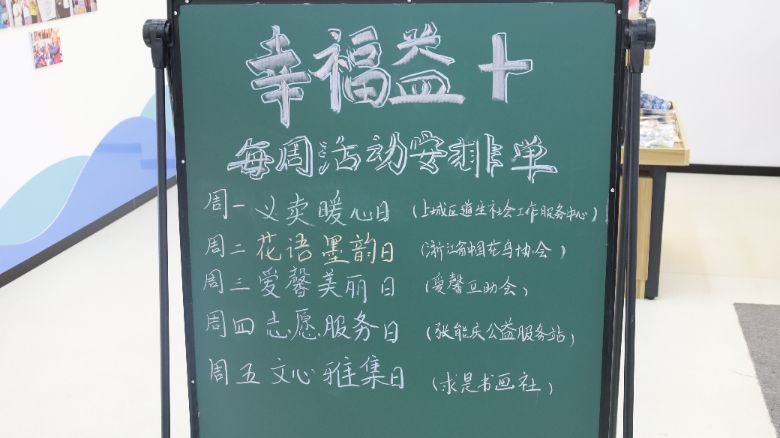 幸福益+
每周活动安排单
周一 义卖暖心日 (上城区道生社会工作服务中心)
周二 花语墨韵日 (浙江省中国花鸟协会)
周三 爱馨美丽日 (爱馨互助会)
周四 志愿服务日 (张能庆公益服务站)
周五 文心雅集日 (求是书画社)